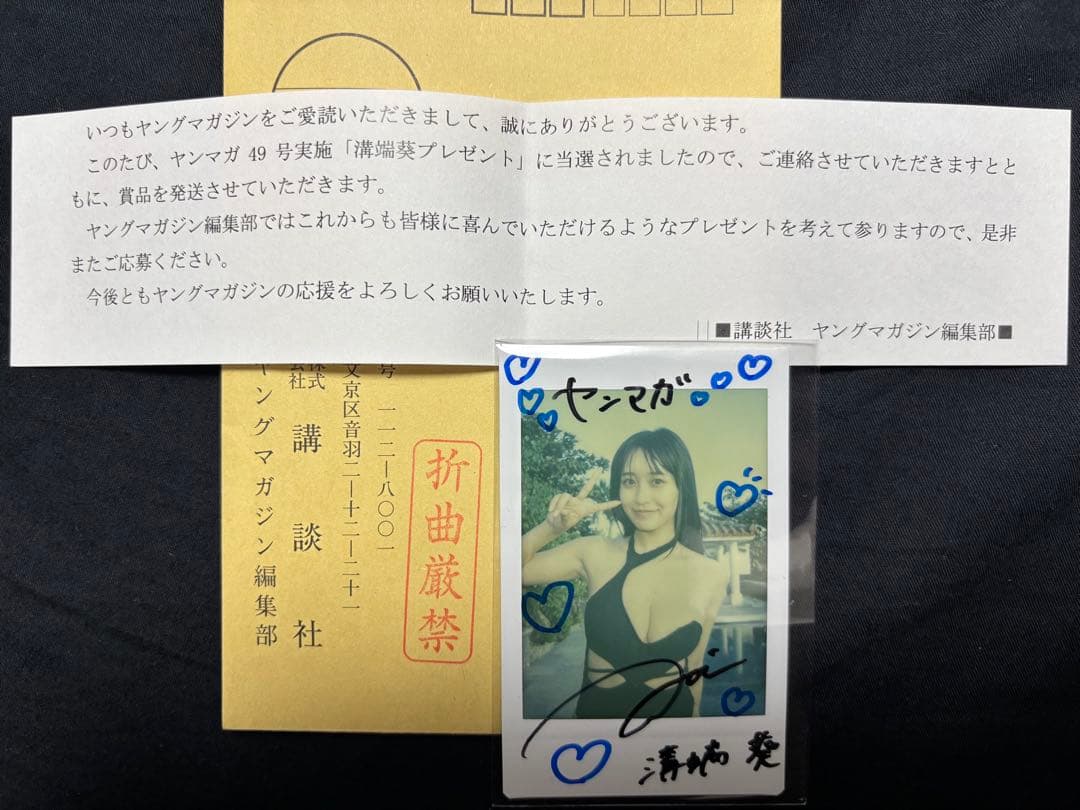 いつもヤングマガジンをご愛読いただきまして、誠にありがとうございます。
このたび、ヤンマガ 49 号実施「溝端葵プレゼント」に当選されましたので、ご連絡させていただきますとと
もに、賞品を発送させていただきます。
ヤングマガジン編集部ではこれからも皆様に喜んでいただけるようなプレゼントを考えて参りますので、是非
またご応募ください。
今後ともヤングマガジンの応援をよろしくお願いいたします。
■講談社 ヤングマガジン編集部■
号 一一二―八〇〇一
文京区音羽二―十二―二十一
株式
会社 講談社
ヤングマガジン編集部
折曲厳禁
ヤンマガ
Aoi
溝端 葵